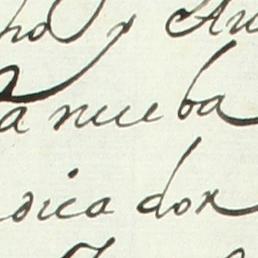 ho y Au
a nueba
dica dor